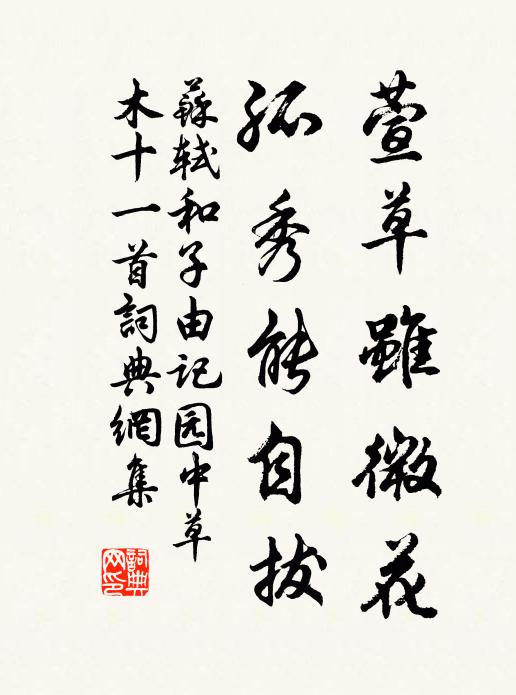 萱草雖微花
孤秀能自拔
蘇軾和子由記园中草
木十一首詞典網集
詞典
网印